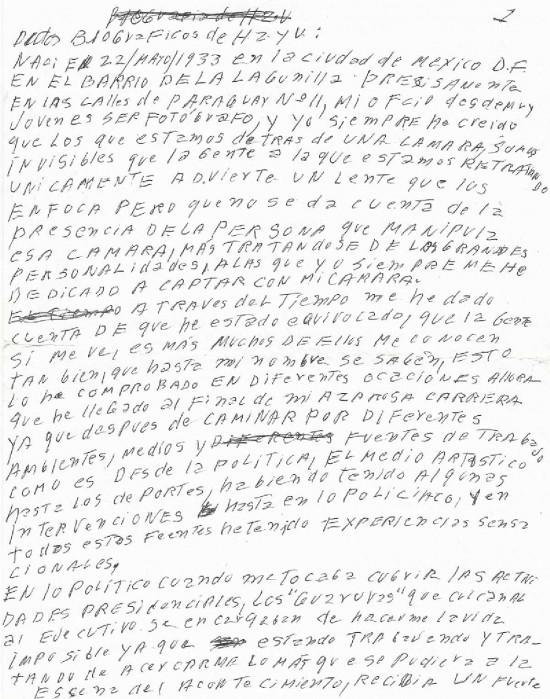 1
Datos BIOGRAFICOS de HZ.YU:
NACI EN 22/MAYO/1933 en la ciudad de MEXICO D.F.
EN EL BARRIO DE LA LAGUNILLA PRESISAMENTE
EN LAS CALLES de PARAGUAY Nº11, MI OFICIO desde muy
JOVEN ES SER FOTOGRAFO, Y YO SIEMPRE HE creido
que LOS que ESTAMOS DETRAS DE UNA CAMARA, SOMOS
INVISIBLES que la Gente a la que ESTAMOS RETRATANDO
UNICAMENTE ADVIERTE UN Lente que los
ENFOCA PERO que no se da cuenta de la
PRESENCIA DE LA PERSONA que MANIPULA
ESA CAMARA, MAS TRATANDOSE DE LAS GRANDES
PERSONALIDADES, A LAS que yo SIEMPRE ME HE
DEDICADO A CAPTAR CON MI CAMARA.
A TRAVES del Tiempo me he dado
cuenta DE que he estado equivocado, que la Gente
SI ME VE, es MAS MUCHOS DE ELLOS ME CONOCEN
TAN bien, que hasta mi nombre se SABEN, ESTO
LO he COMPROBADO EN DIFERENTES OCACIONES AHORA
que he llegado al Final de mi AZAROSA CARRERA
YA que despues de CAMINAR POR DIFERENTES
AMBIENTES, MEDIOS Y FUENTES DE TRABAJO
COMO es DESDE la POLITICA, EL MEDIO ARTISTICO
hasta LOS DEPORTES, habiendo tenido Algunas
INTERVENCIONES hasta en lo POLICIACO, Y en
todas estas Fuentes he tenido EXPERIENCIAS sensa
CIONALES.
EN lo Politico cuando me tocaba cubrir LAS ACTIVI
DADES PRESIDENCIALES, LOS "GUARURAS" que cuidan
al EJECUTIVO se encargaban de hacerme la vida
IMPOSIBLE YA que estando TRABAJANDO Y TRA-
TANDO de ACERCARME LO MAS que se pudiera a la
ESCENA del ACONTECIMIENTO, RECIBIA UN fuerte